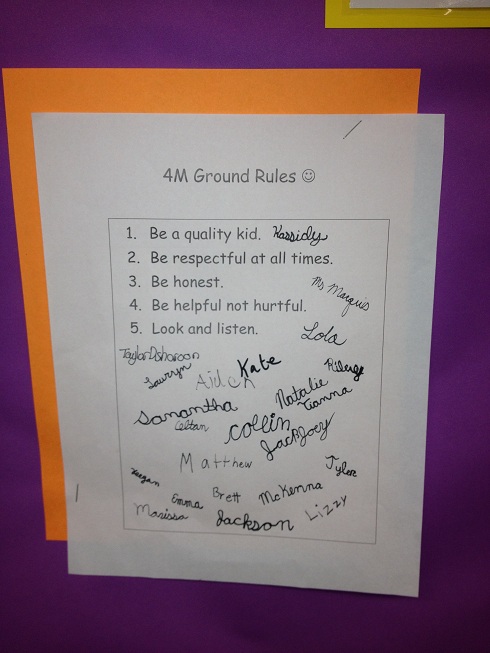 4M Ground Rules ☺
1. Be a quality kid. Kassidy
2. Be respectful at all times.
3. Be honest.
Ms Marquis
4. Be helpful not hurtful.
5. Look and listen.
Lola
Kate
Natalie
Tianna
Samantha
Colton
Collin
Jack Joey
Matthew
Tyler
Megan
Emma
Brett
McKenna
Marissa
Jackson
Lizzy